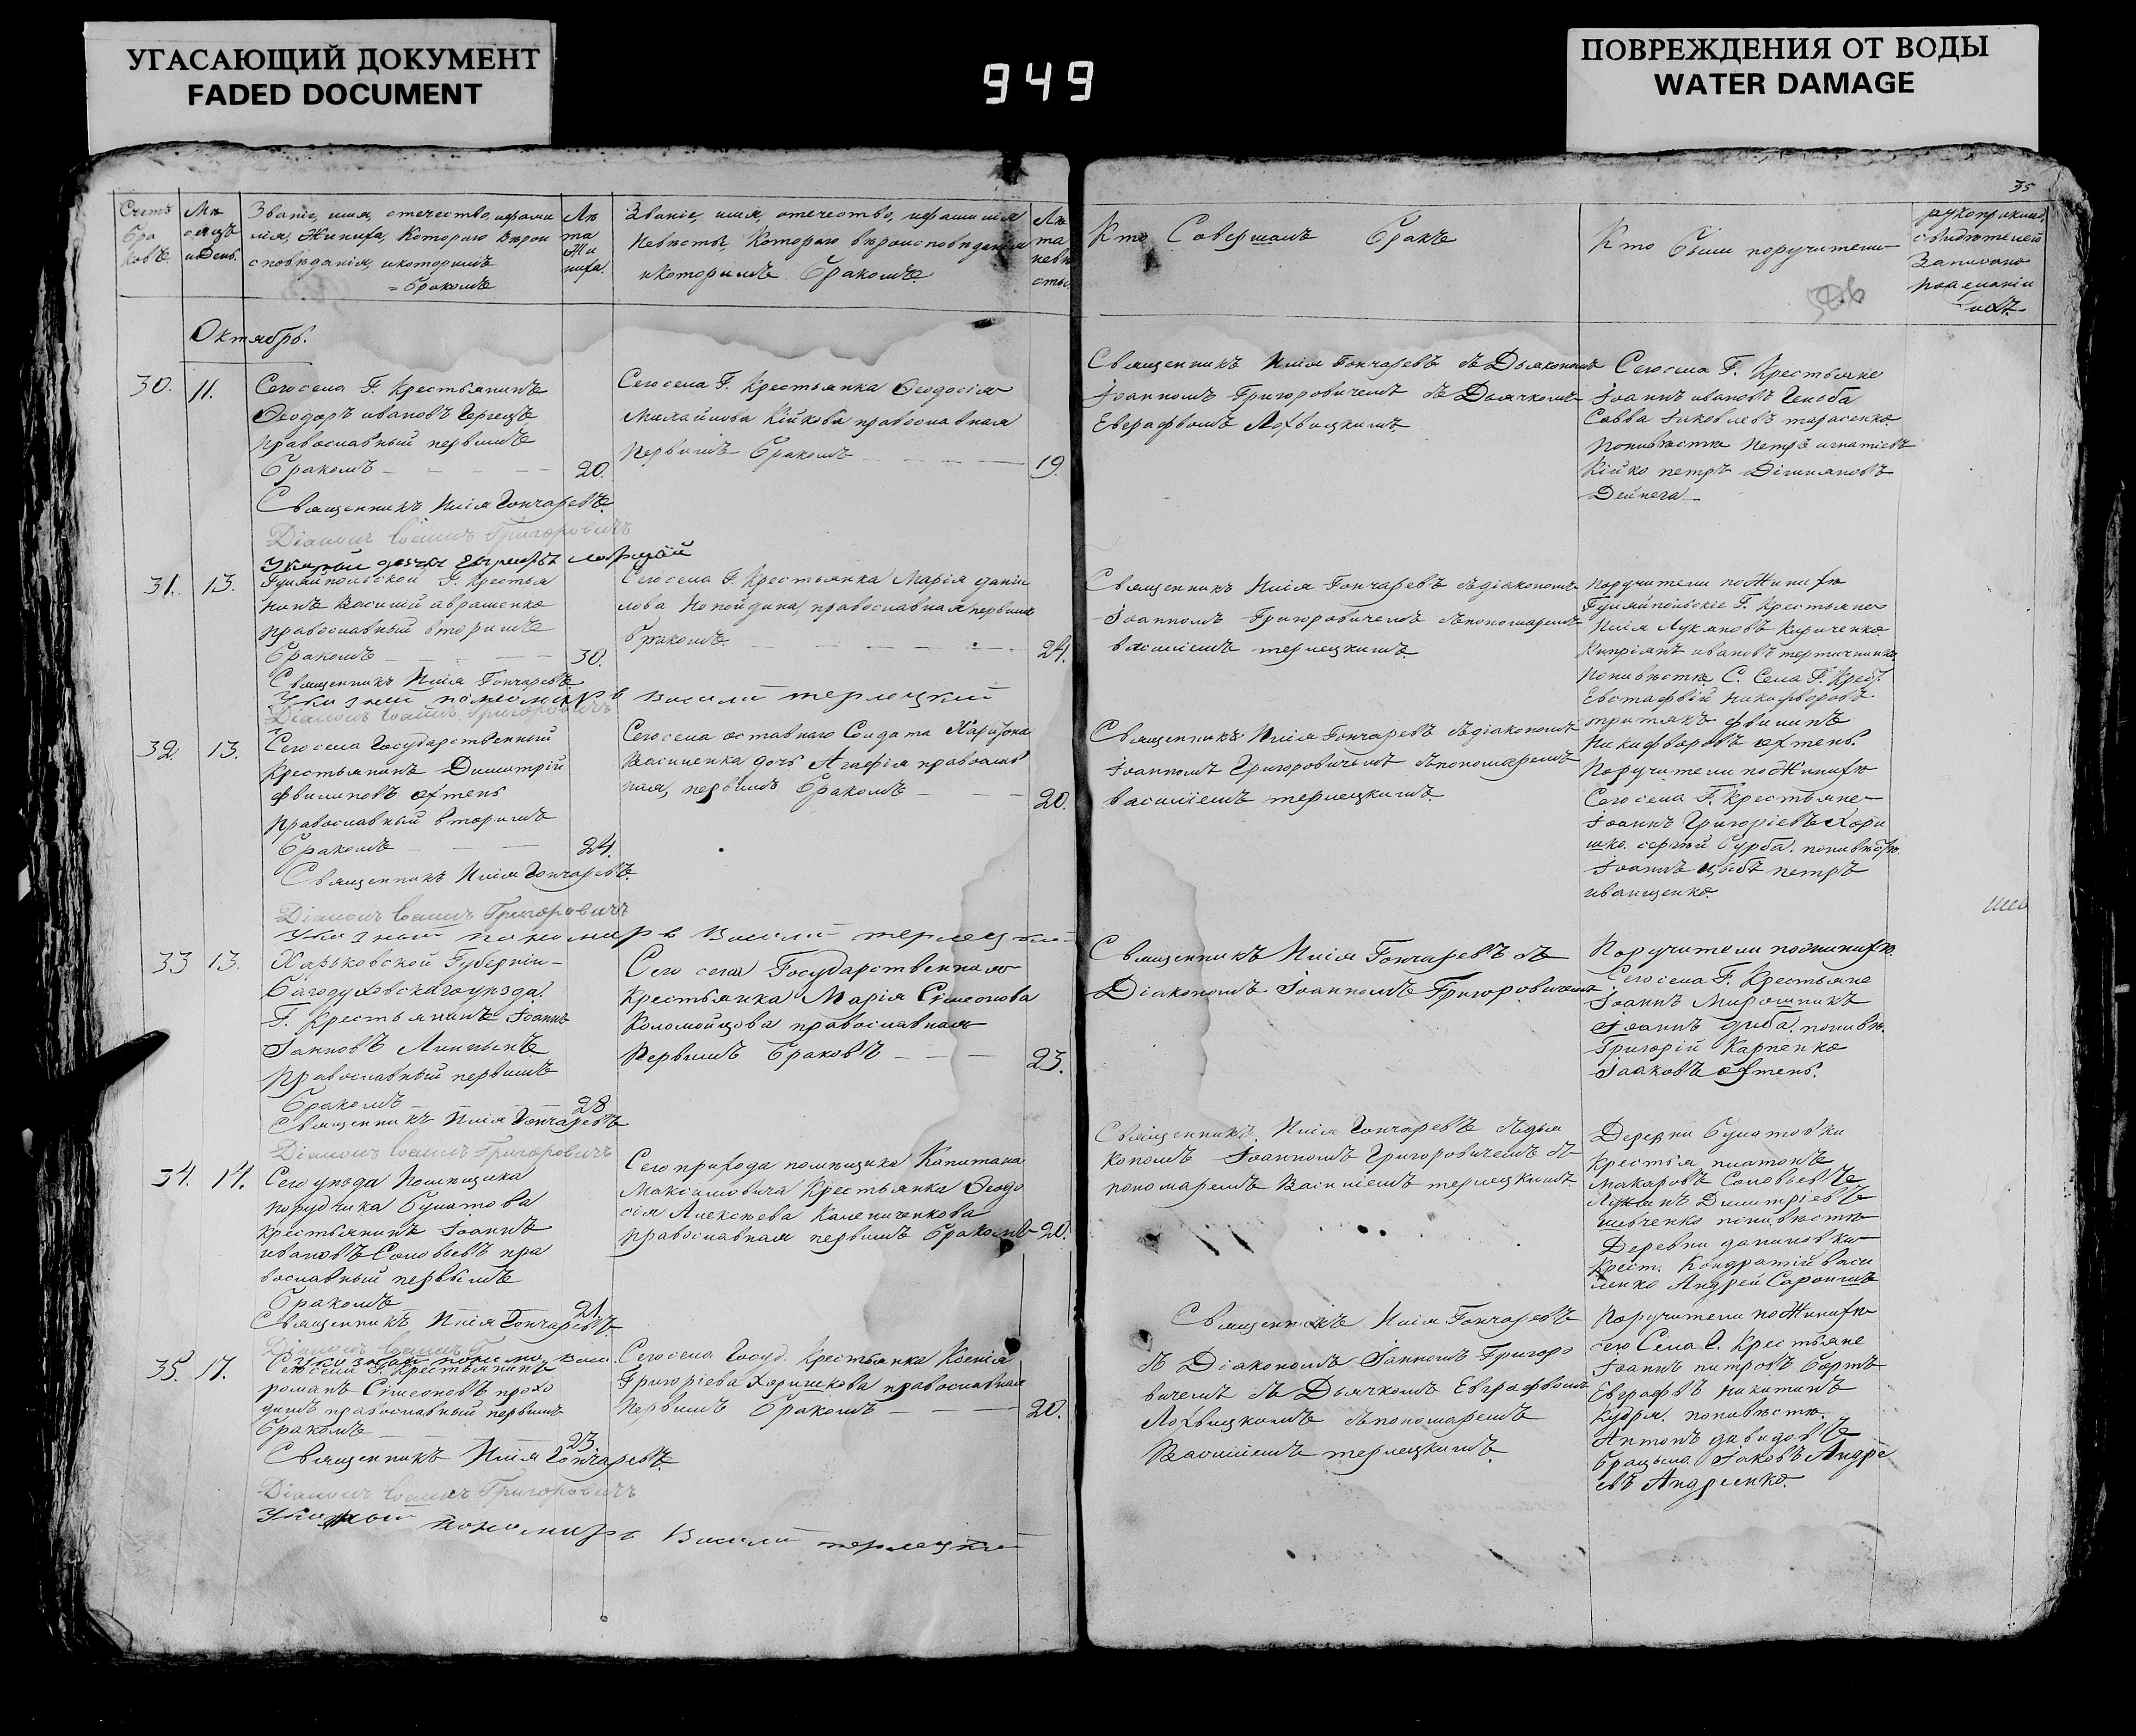 УГАСАЮЩИЙ ДОКУМЕНТ
FADED DOCUMENT
949
ПОВРЕЖДЕНИЯ ОТ ВОДЫ
WATER DAMAGE
35
Счетъ
бра
ковъ.
Мѣ
сяцъ
и день.
Званіе, имя, отечество, и фами
лія, Жениха, Котораго вѣрои
сповѣданія, и которымъ
= бракомъ
Лѣ
та
Жи
ниха.
Званіе, имя, отечество, и фамилія
Невѣсты, Котораго вѣроисповѣданія
и которымъ бракомъ.
Лѣ
та
невѣ
сты.
Кто Совершалъ бракъ
Кто были поручители
Октябрь.
30. 11.
Сего села Г. Крестьянинъ
Ѳеодоръ ивановъ
православный первымъ
бракомъ 20.
Священникъ Илія Гончаревъ.
Діаконъ Іоаннъ Григоровичъ
Сего села Г. Крестьянка Ѳеодосія
Михайлова Кійкова православная
первымъ бракомъ 19.
Священникъ Илія Гончаревъ съ Дьякономъ
Іоанномъ Григоровичемъ съ Дьячкомъ
Евграфомъ Лохвицкимъ.
Сего села Г. Крестьяне
Іоаннъ ивановъ
Савва Яковлевъ тарасенко.
по невѣстѣ петръ игнатіевъ
Кійко петръ
Дейнега
31. 13.
Г. Крестья
нинъ Василій авраменко
православный вторымъ
бракомъ 30.
Священникъ Илія Гончаревъ
Указный пономарь Василій терлецкій
Діаконъ Іоаннъ Григоровичъ
Сего села Г. Крестьянка Марія дании
лова православная первымъ
бракомъ. 24.
Священникъ Илія Гончаревъ съ діакономъ
Іоанномъ Григоровичемъ съ пономаремъ
василіемъ терлецкимъ.
Поручители по Женихѣ
Г. Крестьяне
Илія Лукяновъ Кириченко.
Кипріянъ ивановъ
По невѣстѣ С. Села Г. Крест.
Евстафій никифоровъ
филипъ
Никифоровъ охтень.
32. 13.
Сего села Государственный
Крестьянинъ Димитрій
филиповъ охтень
православный вторымъ
бракомъ 24.
Священникъ Илія Гончаревъ.
Діаконъ Іоаннъ Григоровичъ
Указный пономарь Василій терлецкій
Сего села оставнаго Солдата Харитона
Василенка дочь Агафія православ
ная, первымъ бракомъ 20.
Священникъ Илія Гончаревъ съ діакономъ
Іоанномъ Григоровичемъ съ пономаремъ
василіемъ терлецкимъ.
Поручители по Женихѣ
Сего села Г. Крестьяне
Іоаннъ Григоріевъ Хори
шко. сергій бурба. по невѣстѣ.
Іоаннъ петръ
иванценко.
33 13.
Харьковской Губерніи
Багодуховскаго уѣзда.
Г. Крестьянинъ Іоаннъ
православный первымъ
бракомъ 28
Священникъ Илія Гончаревъ
Діаконъ Іоаннъ Григоровичъ
Сего села Государственная
Крестьянка Марія Сімеонова
Коломойцова православная
Первымъ браковъ 23.
Священникъ Илія Гончаревъ съ
Діакономъ Іоанномъ Григоровичемъ
Поручители по женихѣ.
Сего села Г. Крестьяне
Іоаннъ Мирошникъ
Іоаннъ по невѣ.
Григорій Карпенко
Іааковъ охтень.
34. 14.
Сего уѣзда Помѣщика
порудчика булатова
крестьянинъ Іоаннъ
ивановъ Соловьевъ пра
вославный первымъ
бракомъ 21.
Священникъ Илія Гончаревъ.
Сего прихода помѣщика Капитана
Максимовича Крестьянка Ѳеодо
сія Алексѣева Калениченкова
православная первымъ бракомъ 20.
Священникъ Илія Гончаревъ съ дья
кономъ Іоанномъ Григоровичемъ съ
пономаремъ Василіемъ терлецкимъ.
Деревни булатовки
Крестья платонъ
Макаровъ Соловьевъ
Димитріевъ
шевченко по невѣстѣ
Деревни даниловки
Крест. Кондратій васи
ленко Андрей
35. 17.
Сего села Г. Крестьянинъ
романъ Сімеоновъ прохо
димъ православный первымъ
бракомъ 23.
Священникъ Илія Гончаревъ.
Діаконъ Іоаннъ Григоровичъ
Указный пономарь Василій терлецкій
Сего села Госуд. Крестьянка Ксенія
Григоріева Хоришкова православная
Первымъ бракомъ 20.
Священникъ Илія Гончаревъ
съ Діакономъ Іанномъ Григоро
вичемъ съ Дьячкомъ Евграфомъ
Лохвицкимъ съ пономаремъ
Василіемъ терлецкимъ.
Поручители по Женихѣ
сего Села Г. Крестьяне
Іоаннъ петровъ
Евграфъ никитинъ
Кудря. по невѣстѣ.
Антонъ давидовъ
Іаковъ Андре
евъ Андреенко.